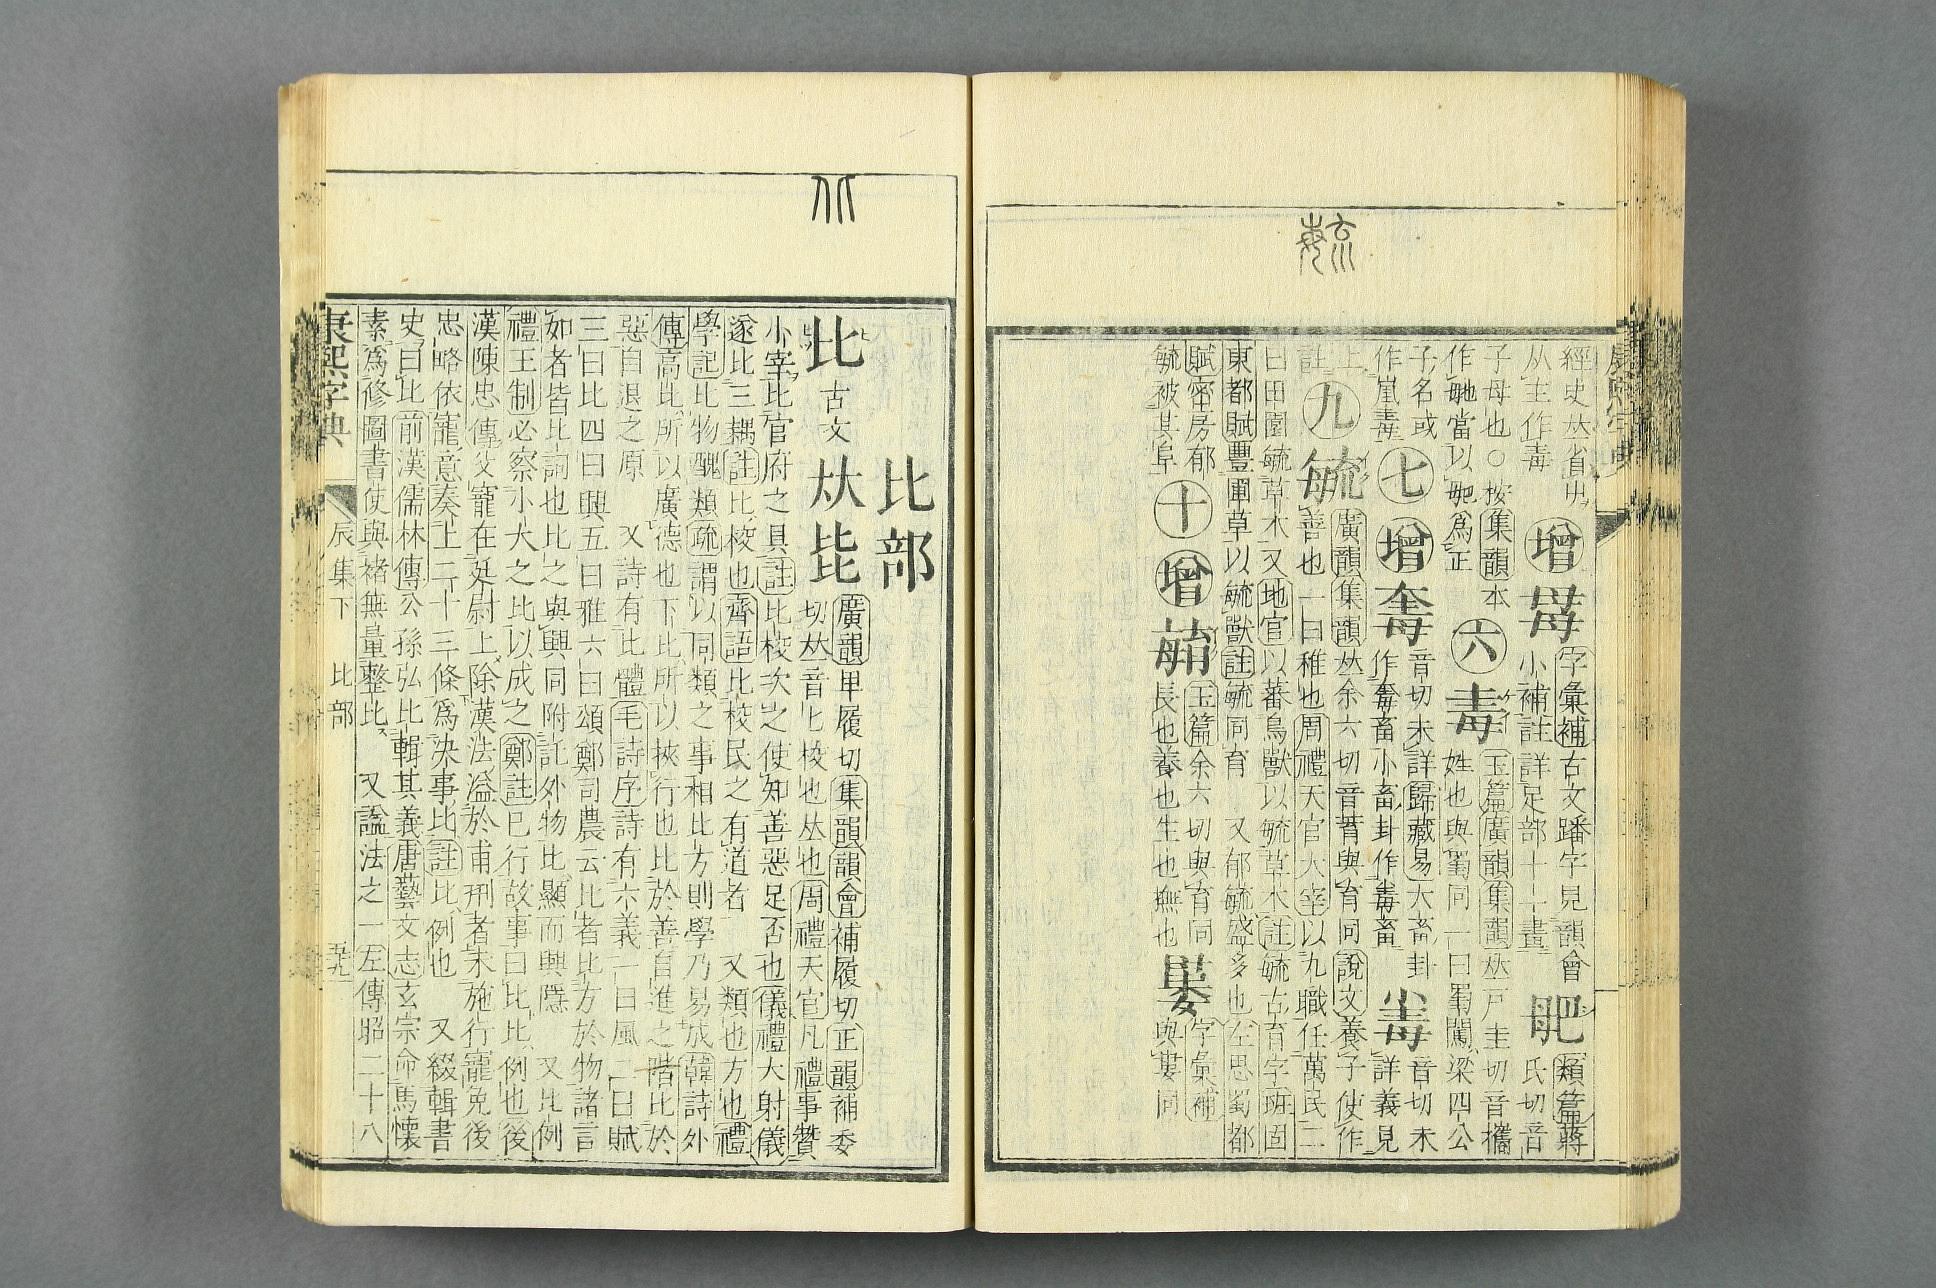 經史𠀤省毋
从主作毒
增
字彙補古文蹯字見韻會
小補註詳足部十二畫
類篇蔣
氏切音
子母也○按集韻本
作㚷當以㚷為正
六
毒
玉篇廣韻集韻𠀤戶圭切音攜
姓也與蜀同一曰蜀闖梁四公
子名或
作嵬毒
七
增
音切未詳歸藏易大畜卦
作𡘋畜小畜卦作毒畜
音切未
詳義見
上
註
九
毓
廣韻集韻𠀤余六切音育與育同說文養子使作
善也一曰稚也周禮天官大宰以九職任萬民二
曰田圃毓草木又地官以蕃鳥獸以毓草木註毓古育字班固
東都賦豐圃草以毓獸註毓同育 又郁毓盛多也左思蜀都
賦密房郁
毓被其阜
十
增
玉篇余六切與育同
長也養也生也撫也
字彙補
與婁同
比部
比
古文
𠀤
毞
廣韻卑履切集韻韻會補履切正韻補委
切𠀤音匕校也𠀤也周禮天官凡禮事贊
小宰比官府之具註比校次之使知善惡足否也儀禮大射儀
遂比三耦註比校也齊語比校民之有道者 又類也方也禮
學記比物醜類疏謂以同類之事相比方則學乃易成韓詩外
傳高比所以廣德也下比所以挾行也比於善自進之階比於
惡自退之原 又詩有比體毛詩序詩有六義一曰風二曰賦
三曰比四曰興五曰雅六曰頌鄭司農云比者比方於物諸言
如者皆比詞也比之與興同附託外物比顯而興隱 又比例
禮王制必察小大之比以成之鄭註已行故事曰比比例也後
漢陳忠傳父寵在廷尉上除漢法溢於甫刑者未施行寵免後
忠略依寵意奏上二十三條為決事比註比例也 又綴輯書
史曰比前漢儒林傳公孫弘比輯其義唐藝文志玄宗命馬懷
素為修圖書使與褚無量整比 又諡法之一左傳昭二十八
康熙字典
辰集下
比部